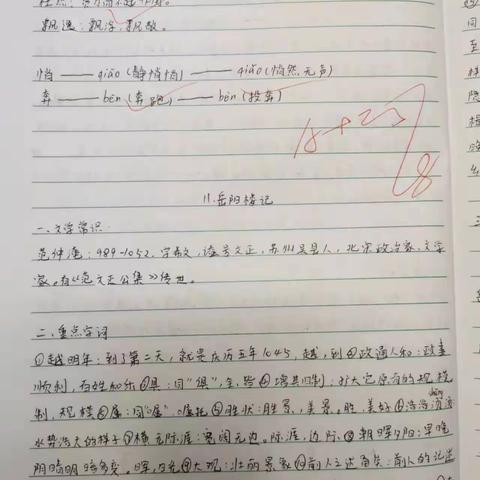 飘逸：飘浮，飘散。
悄 —— qiāo(静悄悄) —— qiǎo(悄然无声)
奔 —— bēn(奔跑) —— bèn(投奔)
11.岳阳楼记
一、文学常识
范仲淹：989-1052，字希文，谥号文正，苏州吴县人，北宋政治家、文学
家。有《范文正公集》传世。
二、重点字词
①越明年：到了第二天，就是庆历五年1045，越，到②政通人和：政事
顺利，百姓和乐③具：同“俱”，全，皆④增其旧制：扩大它原有的规模
制，规模⑤属：同“嘱”，嘱托⑥胜状：胜景，美景。胜，美好⑦浩浩汤汤
水势浩大的样子⑧横无际涯：宽阔无边。际涯，边际⑨朝晖夕阴：早晚
阴晴明暗多变。晖，日光⑩大观：壮丽景象⑪前人之述备矣：前人的记述